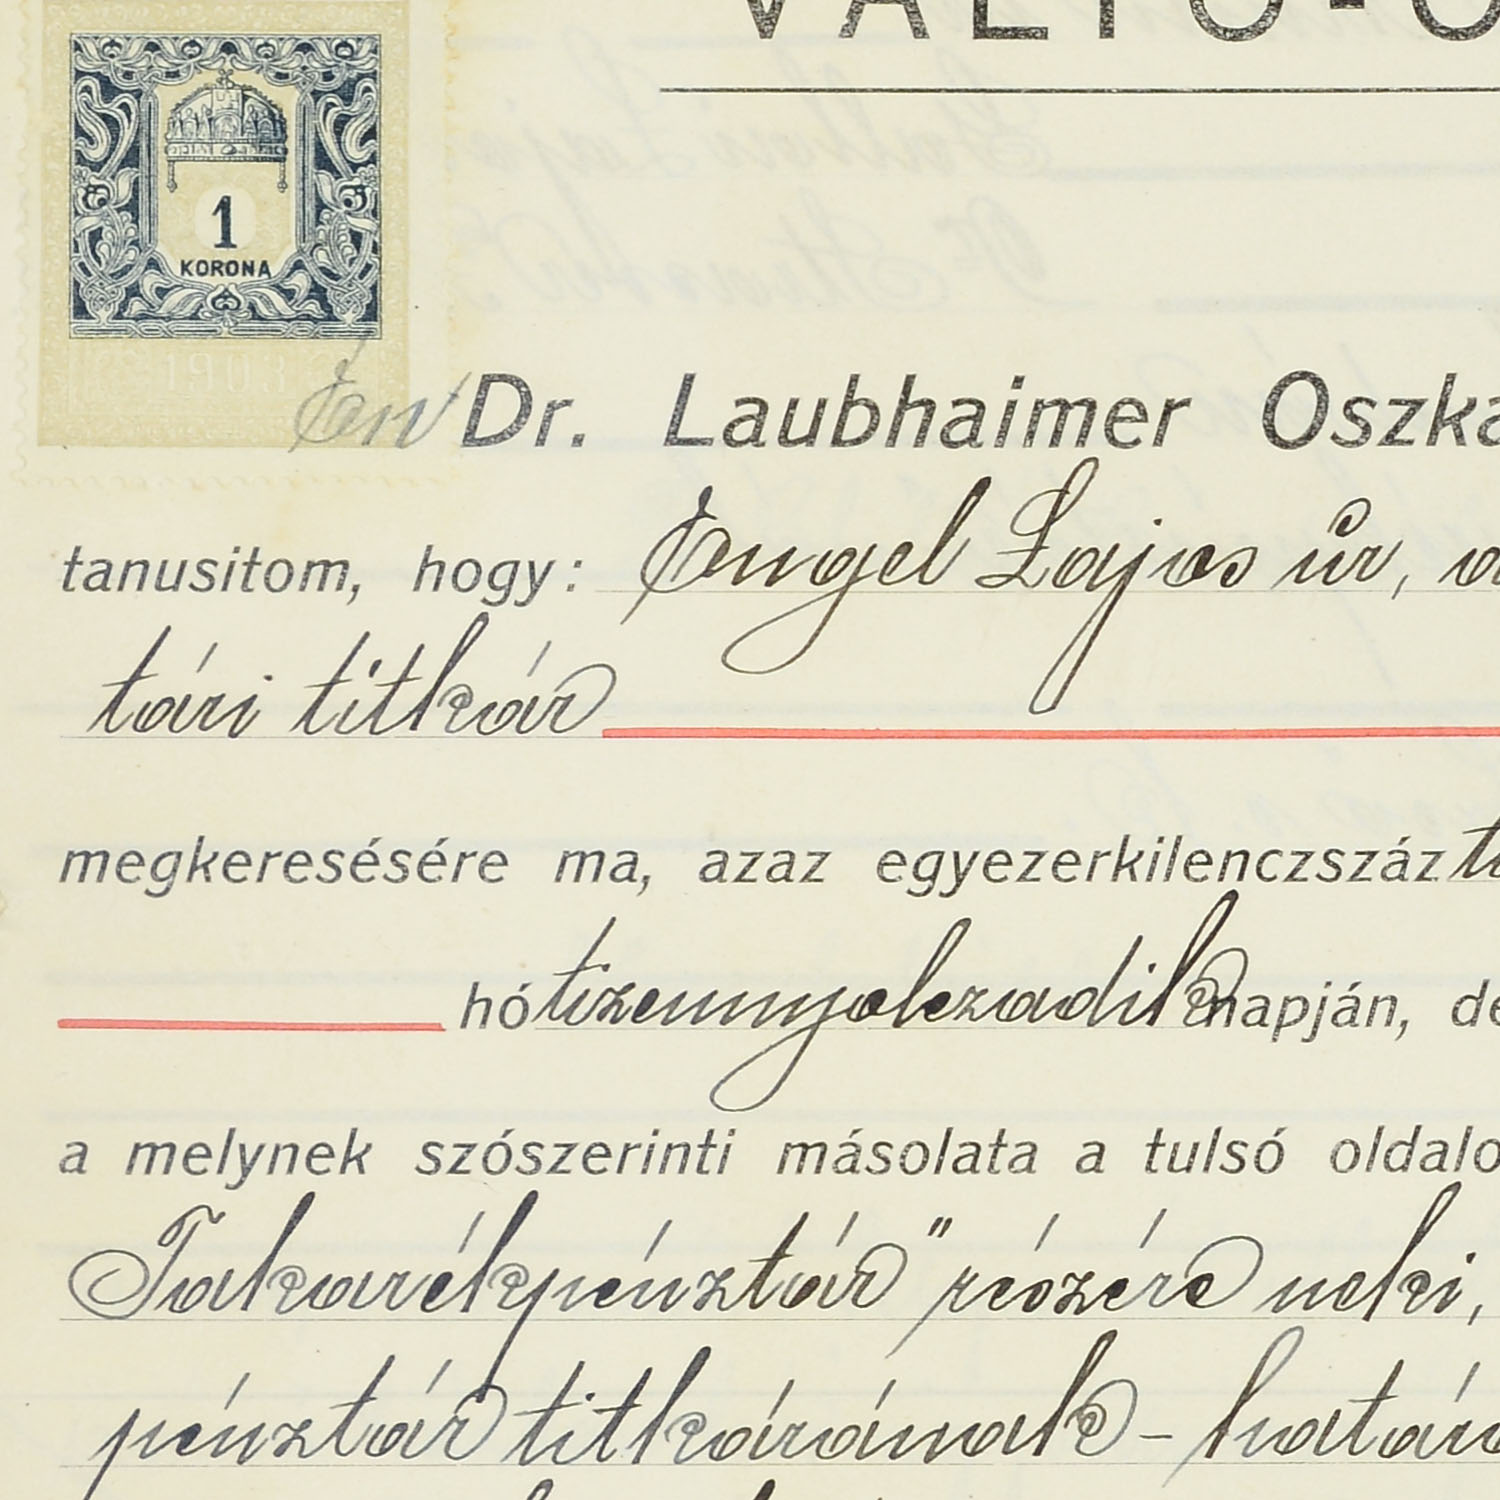 VÁLTÓ-Ó
1
KORONA
1903
Én Dr. Laubhaimer Oszká
tanusitom, hogy: Engel Lajos úr, a
tári titkár
megkeresésére ma, azaz egyezerkilenczszáz
hó tizennyolczadik napján, dé
a melynek szószerinti másolata a tulsó oldalo
Takarékpénztár" részére neki,
pénztár titkárának - határ